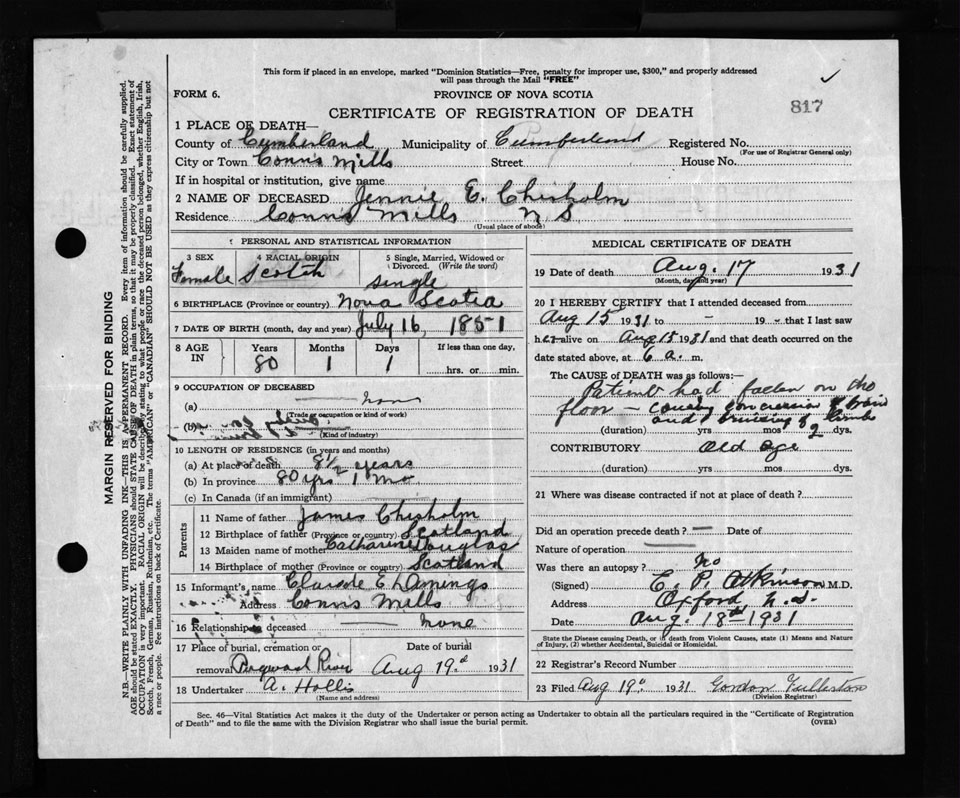 This form if placed in an envelope, marked "Dominion Statistics—Free, penalty for improper use, $300," and properly addressed
will pass through the Mail "FREE"
FORM 6.
PROVINCE OF NOVA SCOTIA
817
CERTIFICATE OF REGISTRATION OF DEATH
1 PLACE OF DEATH—
County of Cumberland Municipality of Cumberland Registered No.
(For use of Registrar General only)
City or Town Conns Mills Street House No.
If in hospital or institution, give name
2 NAME OF DECEASED Jennie E. Chisholm
Residence Conns Mills N S
(Usual place of abode)
PERSONAL AND STATISTICAL INFORMATION
3 SEX
Female
4 RACIAL ORIGIN
Scotch
5 Single, Married, Widowed or
Divorced. (Write the word)
single
6 BIRTHPLACE (Province or country) Nova Scotia
7 DATE OF BIRTH (month, day and year) July 16, 1851
8 AGE IN
Years Months Days If less than one day,
80 1 1 hrs. or min.
9 OCCUPATION OF DECEASED
(a)
(Trade, occupation or kind of work)
(b)
(Kind of industry)
10 LENGTH OF RESIDENCE (in years and months)
(a) At place of death 8½ years
(b) In province 80 yrs 1 mo
(c) In Canada (if an immigrant)
Parents
11 Name of father James Chisholm
12 Birthplace of father (Province or country) Scotland
13 Maiden name of mother Catharine Douglas
14 Birthplace of mother (Province or country) Scotland
15 Informant's name
Address Conns Mills
16 Relationship to deceased none
17 Place of burial, cremation or Date of burial
removal Pugwash River Aug 19d 1931
18 Undertaker A. Hollis
(Name and address)
MEDICAL CERTIFICATE OF DEATH
19 Date of death Aug. 17 1931
(Month, day and year)
20 I HEREBY CERTIFY that I attended deceased from
Aug 15 1931 to - 19 - that I last saw
her alive on Aug 15 1931 and that death occurred on the
date stated above, at 6 a. m.
The CAUSE of DEATH was as follows:—
Patient had fallen on the
floor — causing concussion of brain
and bruising of limbs
(duration) yrs mos 2 dys.
CONTRIBUTORY Old age
(duration) yrs. mos. dys.
21 Where was disease contracted if not at place of death?
Did an operation precede death? — Date of
Nature of operation
Was there an autopsy? No
(Signed) E. P. Atkinson M.D.
Address Oxford N.S.
Date Aug. 18th 1931
State the Disease causing Death, or in death from Violent Causes, state (1) Means and Nature
of Injury, (2) whether Accidental, Suicidal or Homicidal.
22 Registrar's Record Number
23 Filed Aug 19d. 1931 Gordon Fullerton
(Division Registrar)
Sec. 46—Vital Statistics Act makes it the duty of the Undertaker or person acting as Undertaker to obtain all the particulars required in the "Certificate of Registration
of Death" and to file the same with the Division Registrar who shall issue the burial permit.
(OVER)
MARGIN RESERVED FOR BINDING
N.B.—WRITE PLAINLY WITH UNFADING INK—THIS IS A PERMANENT RECORD. Every item of information should be carefully supplied.
AGE should be stated EXACTLY. PHYSICIANS should STATE CAUSE OF DEATH in plain terms, so that it may be properly classified. Exact statement of
OCCUPATION is very important. RACIAL ORIGIN will be described by stating to what people or race the deceased person belonged, whether English, Irish,
Scotch, French, German, Russian, Ruthenian, etc. The terms "AMERICAN" or "CANADIAN" SHOULD NOT BE USED as they express citizenship but not
a race or people. See instructions on back of Certificate.